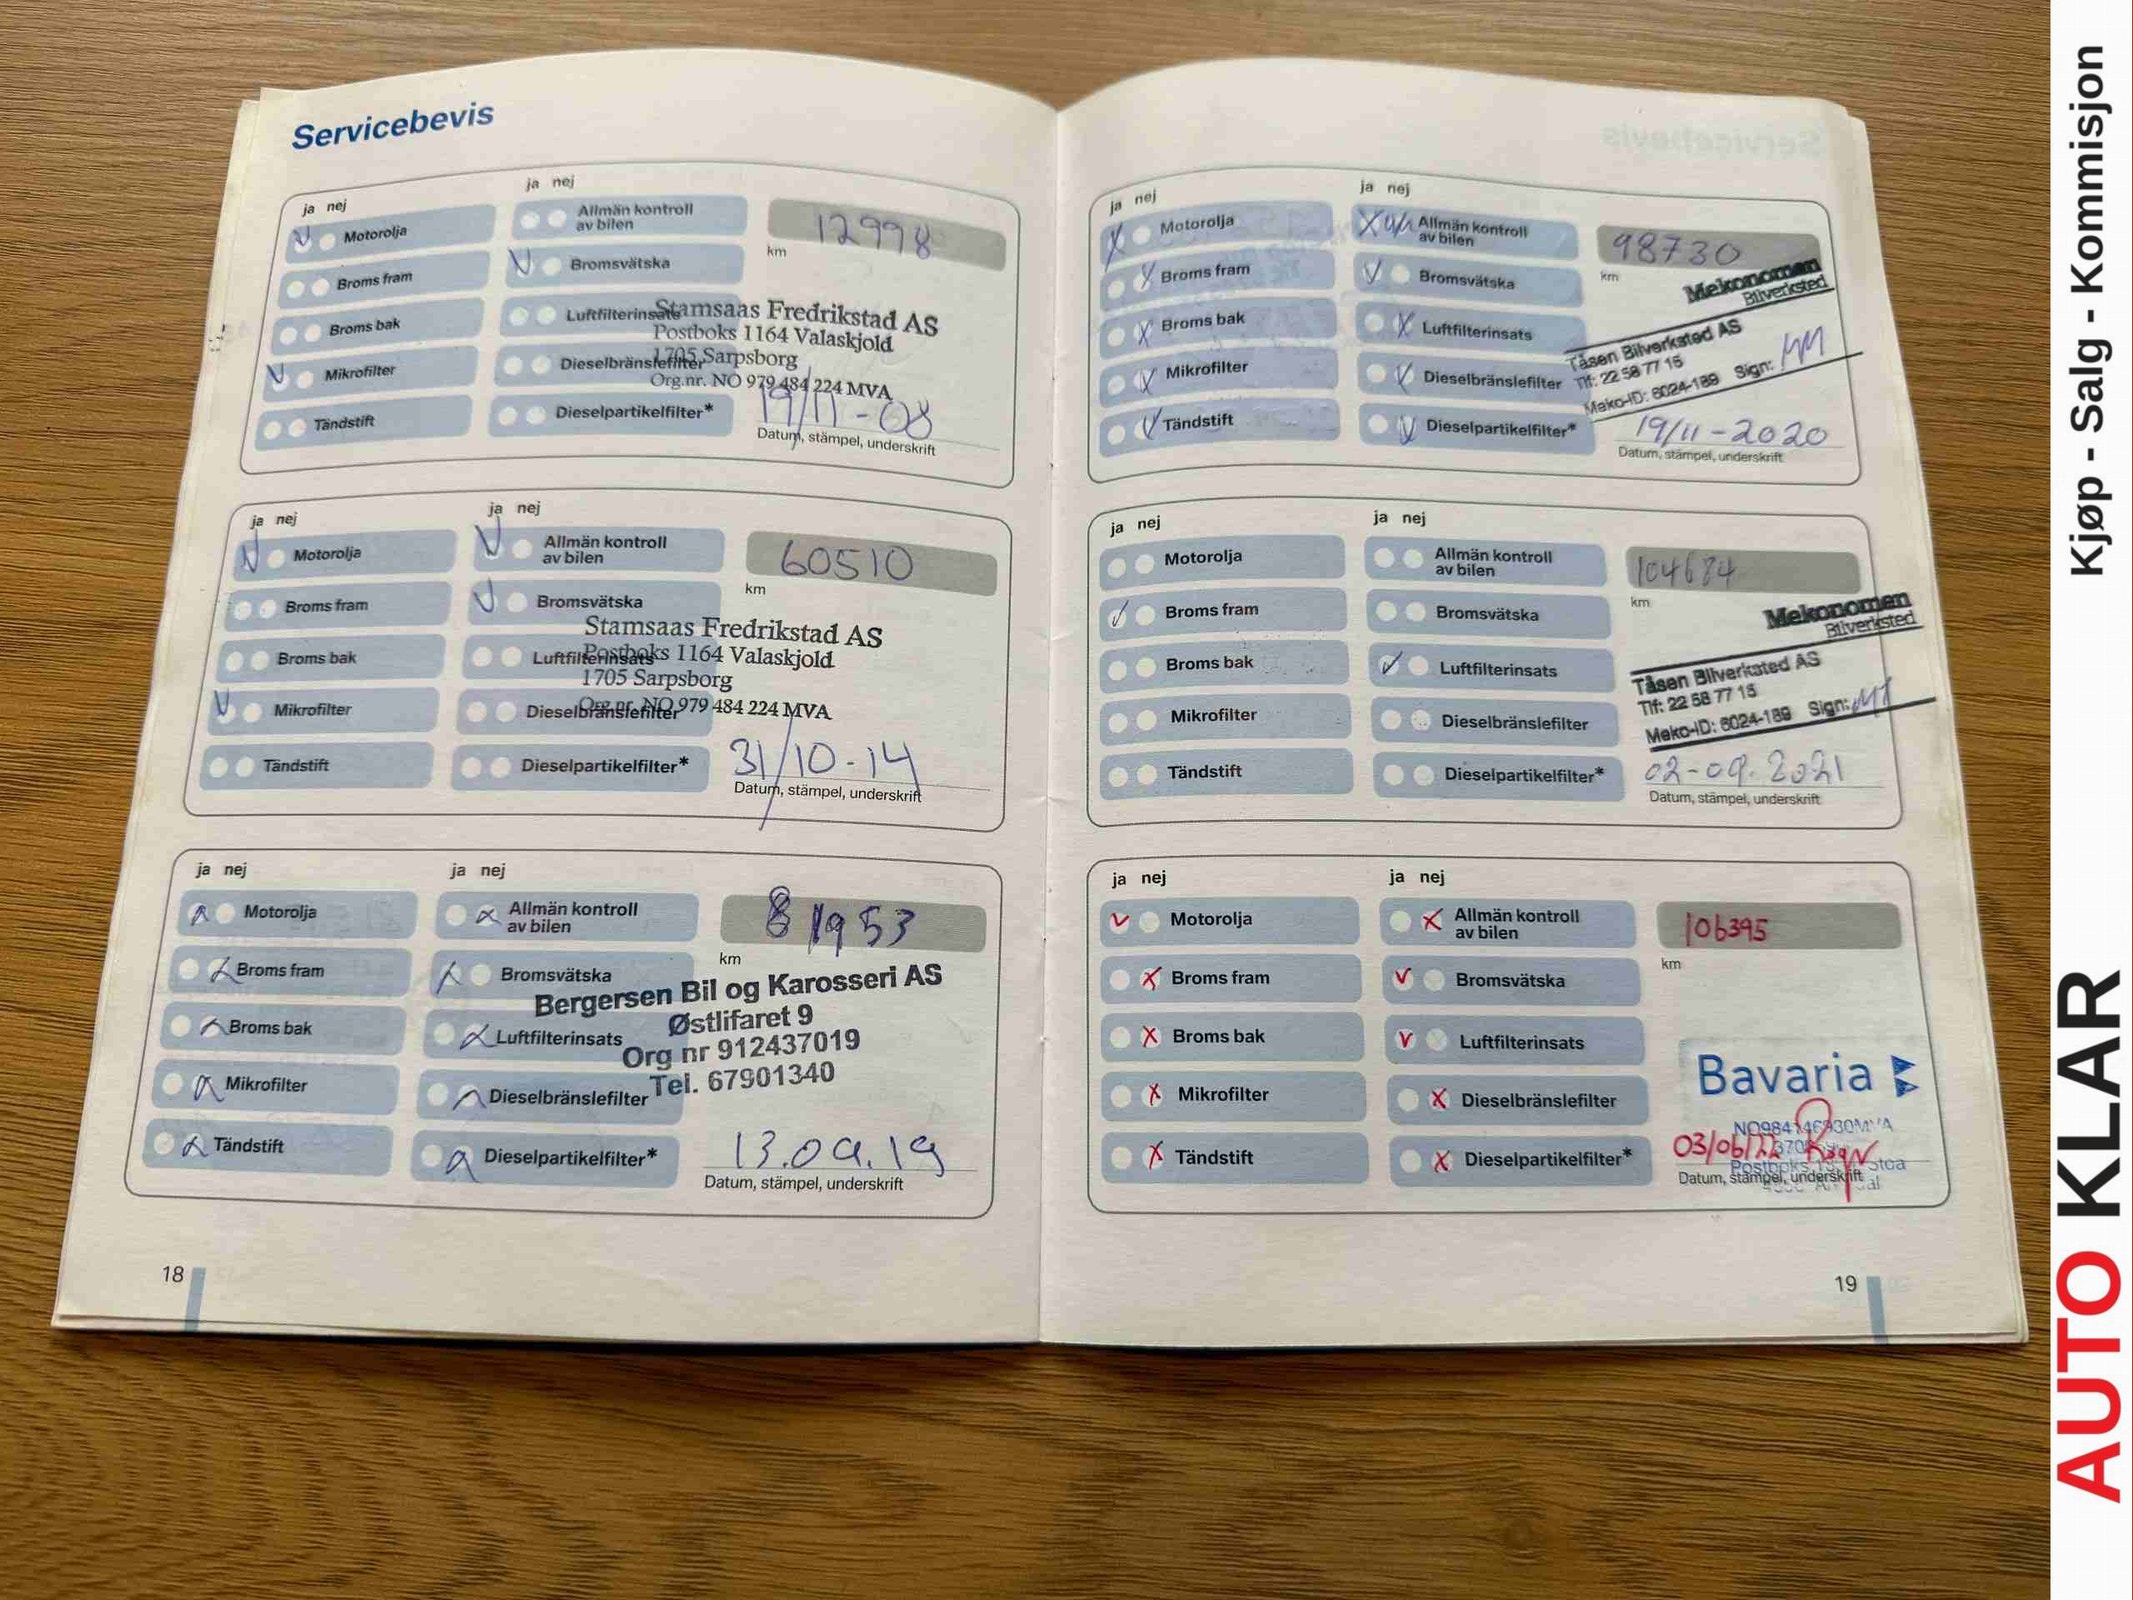 Servicebevis
ja nej
ja nej
Motorolja
Allmän kontroll
av bilen
12998
km
Broms fram
Bromsvätska
Broms bak
Luftfilterinsats
Stamsaas Fredrikstad AS
Postboks 1164 Valaskjold
1705 Sarpsborg
Org.nr. NO 979 484 224 MVA
Mikrofilter
Dieselbränslefilter
Tändstift
Dieselpartikelfilter*
19/11-08
Datum, stämpel, underskrift
ja nej
ja nej
Motorolja
Allmän kontroll
av bilen
60510
km
Broms fram
Bromsvätska
Broms bak
Luftfilterinsats
Stamsaas Fredrikstad AS
Postboks 1164 Valaskjold
1705 Sarpsborg
Org.nr. NO 979 484 224 MVA
Mikrofilter
Dieselbränslefilter
Tändstift
Dieselpartikelfilter*
31/10-14
Datum, stämpel, underskrift
ja nej
ja nej
Motorolja
Allmän kontroll
av bilen
81953
km
Broms fram
Bromsvätska
Broms bak
Luftfilterinsats
Bergersen Bil og Karosseri AS
Østlifaret 9
Org nr 912437019
Tel. 67901340
Mikrofilter
Dieselbränslefilter
Tändstift
Dieselpartikelfilter*
13.09.19
Datum, stämpel, underskrift
18
ja nej
ja nej
Motorolja
Allmän kontroll
av bilen
98730
km
Broms fram
Bromsvätska
Mekonomen
Bilverksted
Broms bak
Luftfilterinsats
Tåsen Bilverksted AS
Tlf: 22 58 77 15
Meko-ID: 6024-189 Sign:
Mikrofilter
Dieselbränslefilter
Tändstift
Dieselpartikelfilter*
19/11-2020
Datum, stämpel, underskrift
ja nej
ja nej
Motorolja
Allmän kontroll
av bilen
104684
km
Broms fram
Bromsvätska
Mekonomen
Bilverksted
Broms bak
Luftfilterinsats
Tåsen Bilverksted AS
Tlf: 22 58 77 15
Meko-ID: 6024-189 Sign:
Mikrofilter
Dieselbränslefilter
Tändstift
Dieselpartikelfilter*
02-09.2021
Datum, stämpel, underskrift
ja nej
ja nej
Motorolja
Allmän kontroll
av bilen
106395
km
Broms fram
Bromsvätska
Broms bak
Luftfilterinsats
Bavaria
Mikrofilter
Dieselbränslefilter
Tändstift
Dieselpartikelfilter*
03/06/22
Datum, stämpel, underskrift
19
Kjøp - Salg - Kommisjon
AUTO KLAR